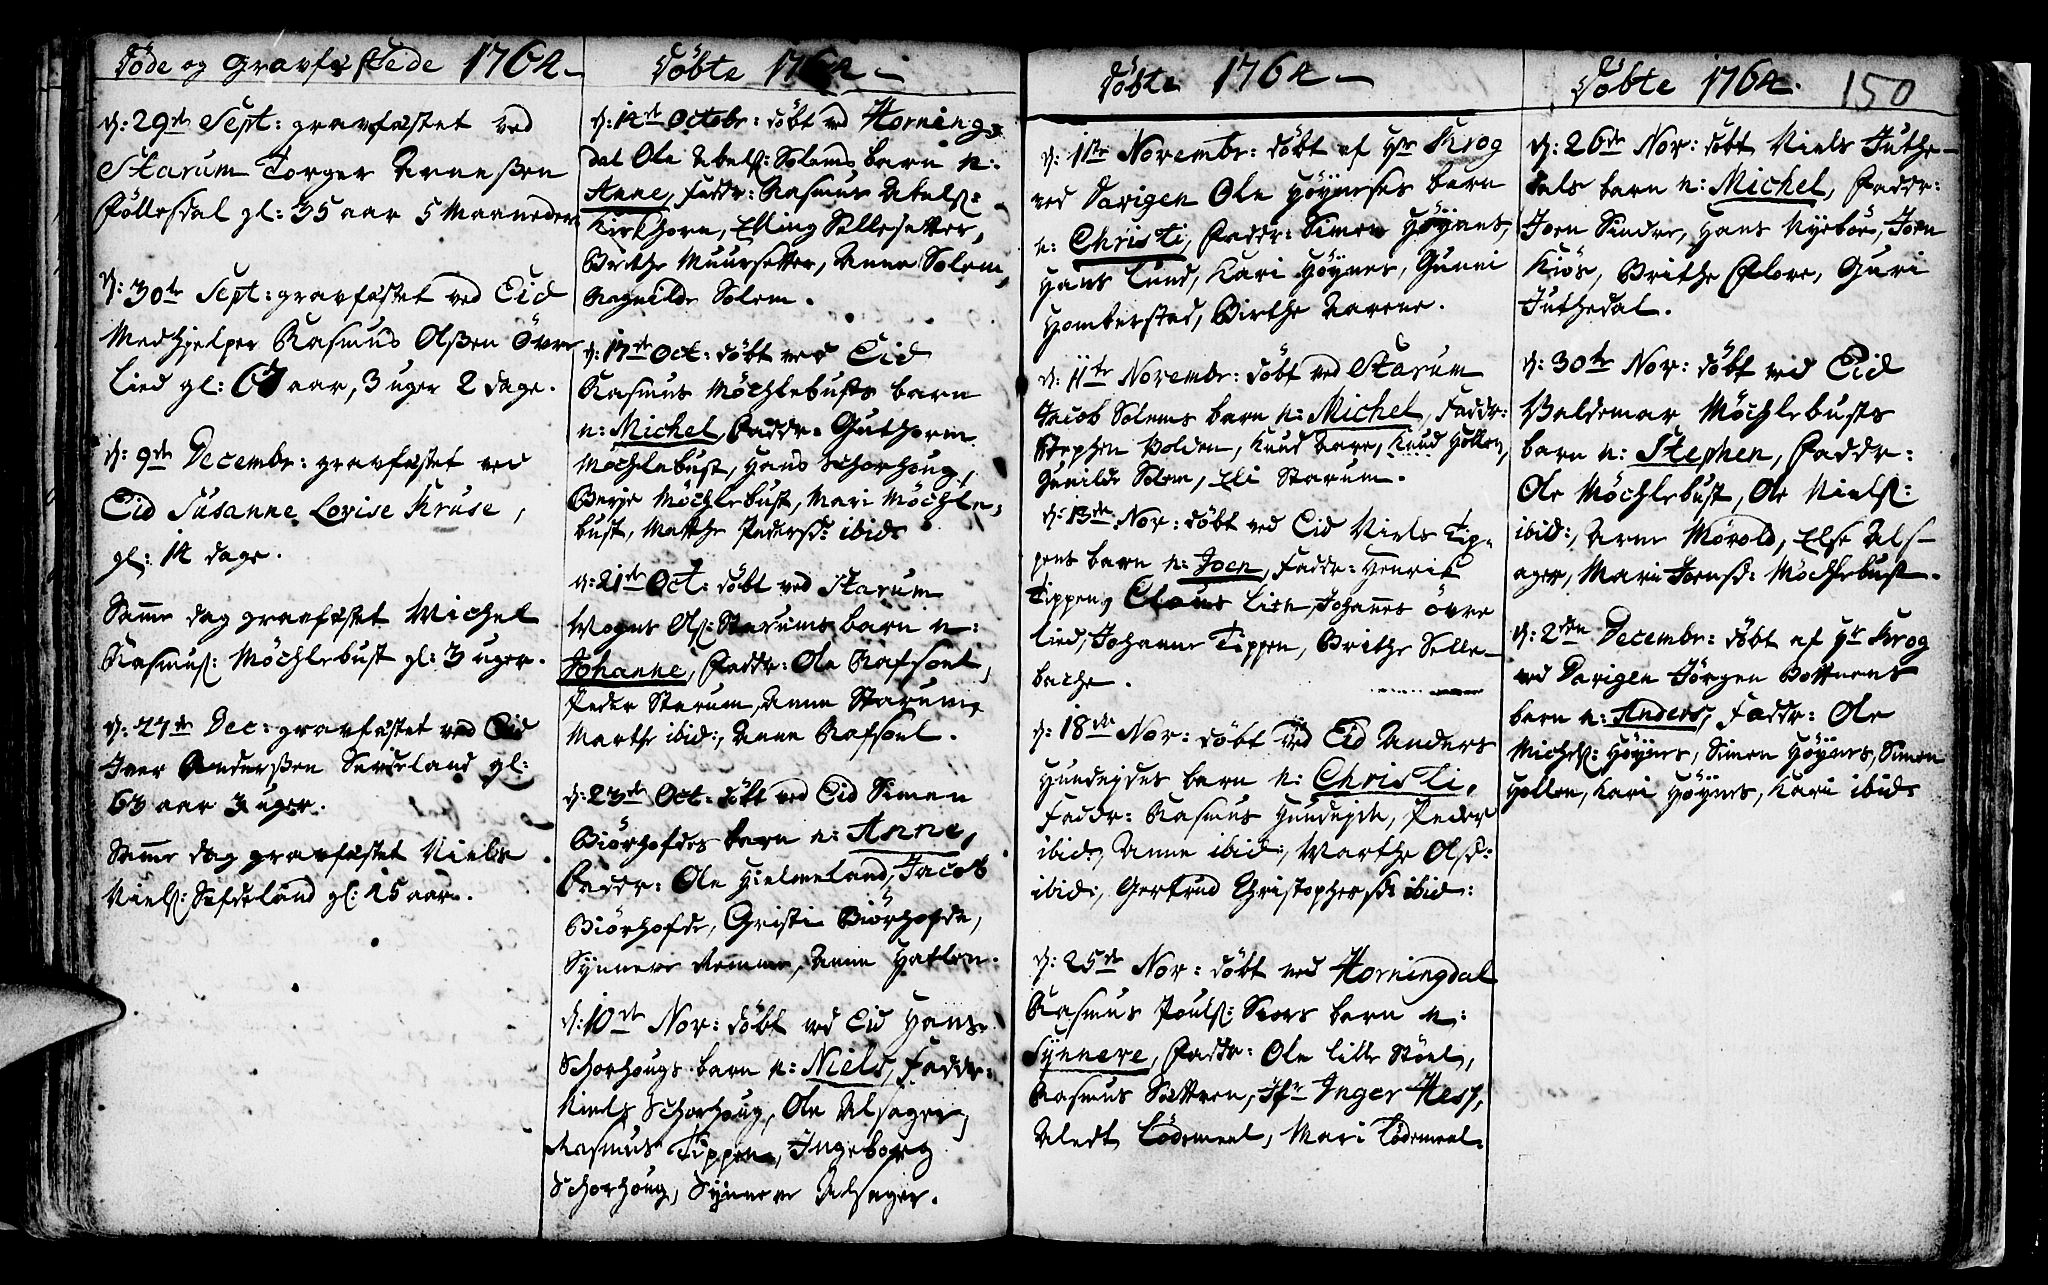 Døde og gravfæstede 1764
d: 29de Sept: gravfæstet ved
Starum Torger Arneßen
Föllesdal gl: 35 aar 5 Maaneder.
d: 30te Sept: gravfæstet ved Eid
Medhjelper Rasmus Olßen Övre
Lied gl: aar, 3 uger 2 dage.
d: 9de Decembr: gravfæstet ved
Eid Susanne Lovise Kruse,
gl: 14 dage.
Samme dag gravfæstet Michel
Rasmuss: Möchlebust gl: 3 uger.
d: 27de Dec: gravfæstet ved Eid
Iver Anderßen gl:
63 aar 3 uger.
Samme dag gravfæstet Niels
Niels: gl: 15 aar.
Döbte 1764
d: 14de Octobr: döbt ved Hornings
dal Ole Abels: Solems barn n:
Anne, Faddr: Rasmus Abels:
Kirkhorn, Elling Sellesetter,
Birthe Muursetter, Anne Solem,
Ragnilde Solem.
d: 17de Oct: döbt ved Eid
Rasmus Möchlebusts barn
n: Michel, Faddr: Guthorm
Möchlebust, Hans Schorhoug,
Berje Möchlebust, Mari Möchle,
bust, Marthe Pedersd: ibid:
d: 21de Oct: döbt ved Starum
Mogns Ols: Starums barn n:
Johanne, Faddr: Ole Rafsoel,
Peder Starum, Anne Starum,
Marthe ibid:, Anne Rafsoel.
d: 23de Oct: döbt ved Eid Simen
Biörhofdes barn n: Anne,
Faddr: Ole Hielmeland, Jacob
Biörhofde, Christi Biörhofde,
Synneve Anne Hatlen.
d: 10de Nor: döbt ved Eid Hans
Schorhougs barn n: Niels, Faddr:
Niels Schorhoug, Ole Alsager,
Rasmus Tippen, Ingeborg
Schorhoug, Synneve Alsager.
Döbte 1764
d: 11te Novembr: döbt af Hr Krog
ved Davigen Ole Höynæses barn
n: Christi, Faddr: Simen Höynes,
Hans Lund, Kari Höynes, Gunni
Homberstad, Birthe Aarene.
d: 11te Novembr: döbt ved Starum
Jacob Solems barn n: Michel, Faddr:
Stephen Volden, Knud Aare, Knud Hollen,
Gunilde Solem, Eli Starum.
d: 13de Nor: döbt ved Eid Niels Tip-
pens barn n: Joen, Faddr: Henrik
Tippen, Claus Lien, Johannes Övre
Lied, Johanne Tippen, Brithe Selle-
bache.
d: 18de Nor: döbt ved Eid Anders
Hundejdes barn n: Christi,
Faddr: Rasmus Hundejde, Peder
ibid:, Anne ibid:, Marthe Olsd:
ibid:, Gertrud Christophersd: ibid:
d: 25de Nor: döbt ved Horningdal
Rasmus Pouls: barn n:
Synneve, Faddr: Ole Lille Stöel,
Rasmus Sættren, Jfr Inger Hess,
Aledt Lödemeel, Mari Lödemeel.
Döbte 1764. 150
d: 26de Nor: döbt Niels Juthe-
dals barn n: Michel, Faddr:
Joen Sindre, Hans Nyebøe, Joen
Kiös, Brithe Flore, Guri
Juthedal.
d: 30te Nor: döbt ved Eid
Valdemar Möchlebusts
barn n: Stephen, Faddr:
Ole Möchlebust, Ole Niels:
ibid:, Arne Morold, Else Als-
ager, Mari Joensd: Möchlebust.
d: 2den Decembr: döbt af Hr Krog
ved Davigen Jörgen Bottnens
barn n: Anders, Faddr: Ole
Michels: Höynes, Simen Höynes, Simen
Hollen, Kari Höynes, Kari ibid: